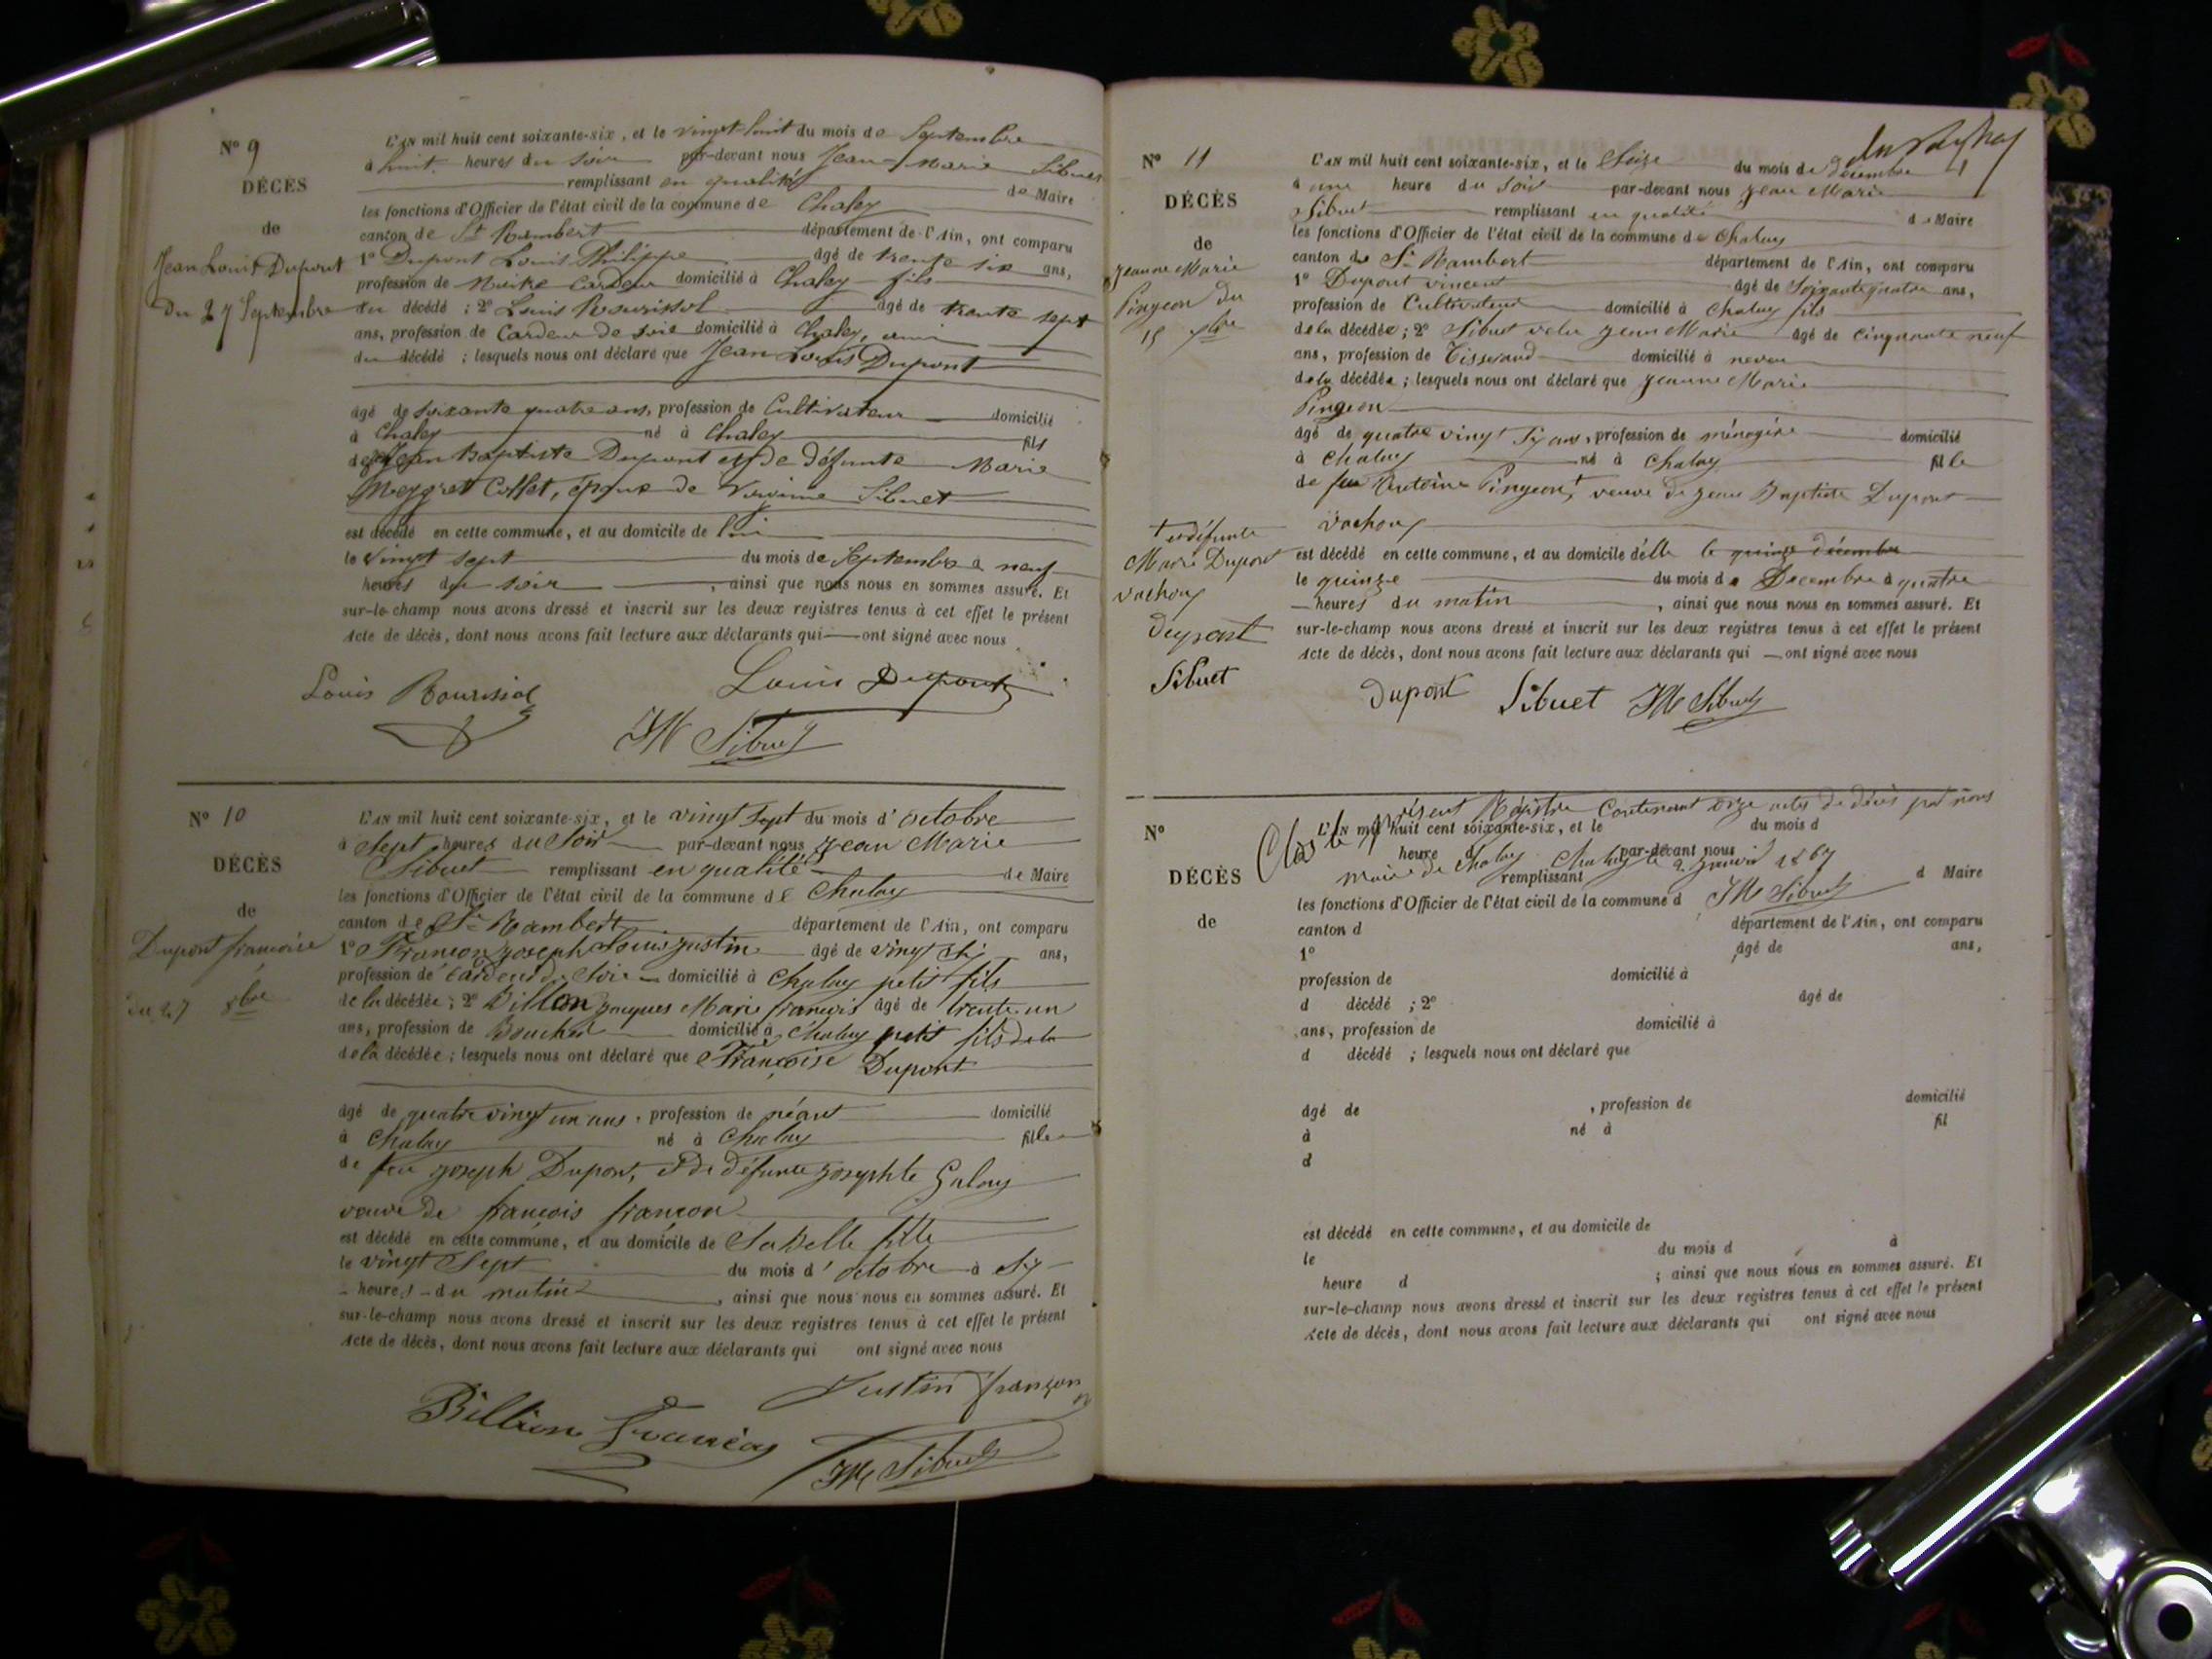 N° 9
DÉCÈS
de
Jean Louis Dupont
Du 27 Septembre
L'AN mil huit cent soixante-six, et le vingt huit du mois de Septembre
à huit heures du soir par-devant nous Jean-Marie Sibuet
remplissant en qualité de Maire
les fonctions d'Officier de l'état civil de la commune de Chaley
canton de St Rambert département de l'Ain, ont comparu
1° Dupont Louis Philippe âgé de trente six ans,
profession de cardeur domicilié à Chaley fils
du décédé ; 2° Louis Bourissol âgé de trente sept
ans, profession de Cardeur de soie domicilié à Chaley, ami
du décédé ; lesquels nous ont déclaré que Jean Louis Dupont
âgé de soixante quatre ans, profession de Cultivateur domicilié
à Chaley né à Chaley fils
de Jean Baptiste Dupont et de défunte Marie
Collet, époux de Sibuet
est décédé en cette commune, et au domicile de lui
le vingt sept du mois de Septembre à neuf
heures du soir, ainsi que nous nous en sommes assuré. Et
sur-le-champ nous avons dressé et inscrit sur les deux registres tenus à cet effet le présent
Acte de décès, dont nous avons fait lecture aux déclarants qui ont signé avec nous
Louis Bourissol Louis Dupont
JM Sibuet
N° 10
DÉCÈS
de
Dupont francoise
du 27 8bre
L'AN mil huit cent soixante-six, et le vingt sept du mois d' octobre
à Sept heures du Soir par-devant nous jean Marie
Sibuet remplissant en qualité de Maire
les fonctions d'Officier de l'état civil de la commune de Chaley
canton de St Rambert département de l'Ain, ont comparu
1° Françon joseph Louis justin âgé de vingt Six ans,
profession de Cardeur de Soie domicilié à Chaley petit fils
de la décédée ; 2° Billion jacques Marie francois âgé de trente un
ans, profession de Boucher domicilié à Chaley petit fils de la
de la décédée ; lesquels nous ont déclaré que Françoise Dupont
âgé de quatre vingt un ans, profession de néant domicilié
à Chaley né à Chaley fille
de feu joseph Dupont, et de défunte josephte Galay
veuve de francois françon
est décédé en cette commune, et au domicile de Sa Belle fille
le vingt Sept du mois d' octobre à Six
heures du matin, ainsi que nous nous en sommes assuré. Et
sur-le-champ nous avons dressé et inscrit sur les deux registres tenus à cet effet le présent
Acte de décès, dont nous avons fait lecture aux déclarants qui ont signé avec nous
Justin françon
Billion Francois
JM Sibuet
N° 11
DÉCÈS
de
jeanne Marie
Pingeon du
15 Xbre
L'AN mil huit cent soixante-six, et le Seize du mois de décembre
à une heure du soir par-devant nous jean Marie
Sibuet remplissant en qualité de Maire
les fonctions d'Officier de l'état civil de la commune de Chaley
canton de St Rambert département de l'Ain, ont comparu
1° Dupont vincent âgé de Soixante quatre ans,
profession de Cultivateur domicilié à Chaley fils
de la décédée ; 2° Sibuet jean Marie âgé de cinquante neuf
ans, profession de Tisserand domicilié à neveu
de la décédée ; lesquels nous ont déclaré que jeanne Marie
Pingeon
âgé de quatre vingt Six ans, profession de ménagère domicilié
à Chaley né à Chaley fille
de feu Antoine Pingeon † veuve de jean Baptiste Dupont
vachoux
† et défunte
Marie Dupont
vachoux
dupont
Sibuet
est décédé en cette commune, et au domicile d'elle le quinze décembre
le quinze du mois de Decembre à quatre
heures du matin, ainsi que nous nous en sommes assuré. Et
sur-le-champ nous avons dressé et inscrit sur les deux registres tenus à cet effet le présent
Acte de décès, dont nous avons fait lecture aux déclarants qui ont signé avec nous
dupont Sibuet JM Sibuet
Clos le présent Régistre Contenant onze actes de décès par nous
maire de Chaley Chaley le 2 janvier 1867
JM Sibuet
N°
DÉCÈS
de
L'AN mil huit cent soixante-six, et le du mois d
heure d par-devant nous
remplissant d Maire
les fonctions d'Officier de l'état civil de la commune d
canton d département de l'Ain, ont comparu
1° âgé de ans,
profession de domicilié à
d décédé ; 2° âgé de
ans, profession de domicilié à
d décédé ; lesquels nous ont déclaré que
âgé de , profession de domicilié
à né à fil
d
est décédé en cette commune, et au domicile de
le du mois d à
heure d ; ainsi que nous nous en sommes assuré. Et
sur-le-champ nous avons dressé et inscrit sur les deux registres tenus à cet effet le présent
Acte de décès, dont nous avons fait lecture aux déclarants qui ont signé avec nous